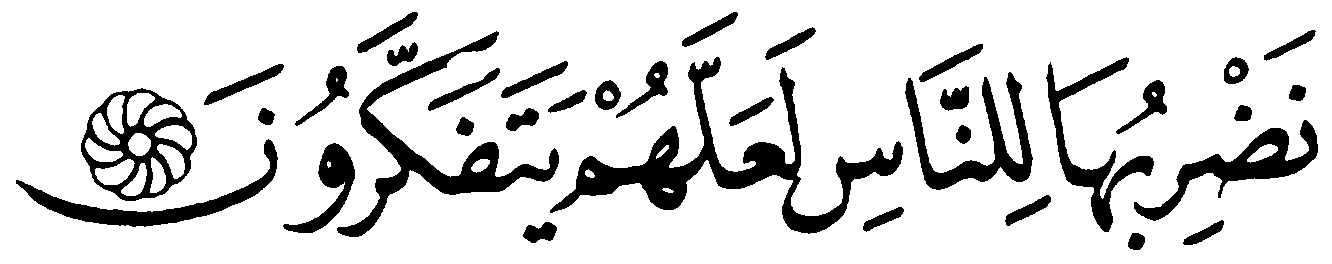 نَضْرِبُهَا لِلنَّاسِ لَعَلَّهُمْ يَتَفَكَّرُونَ